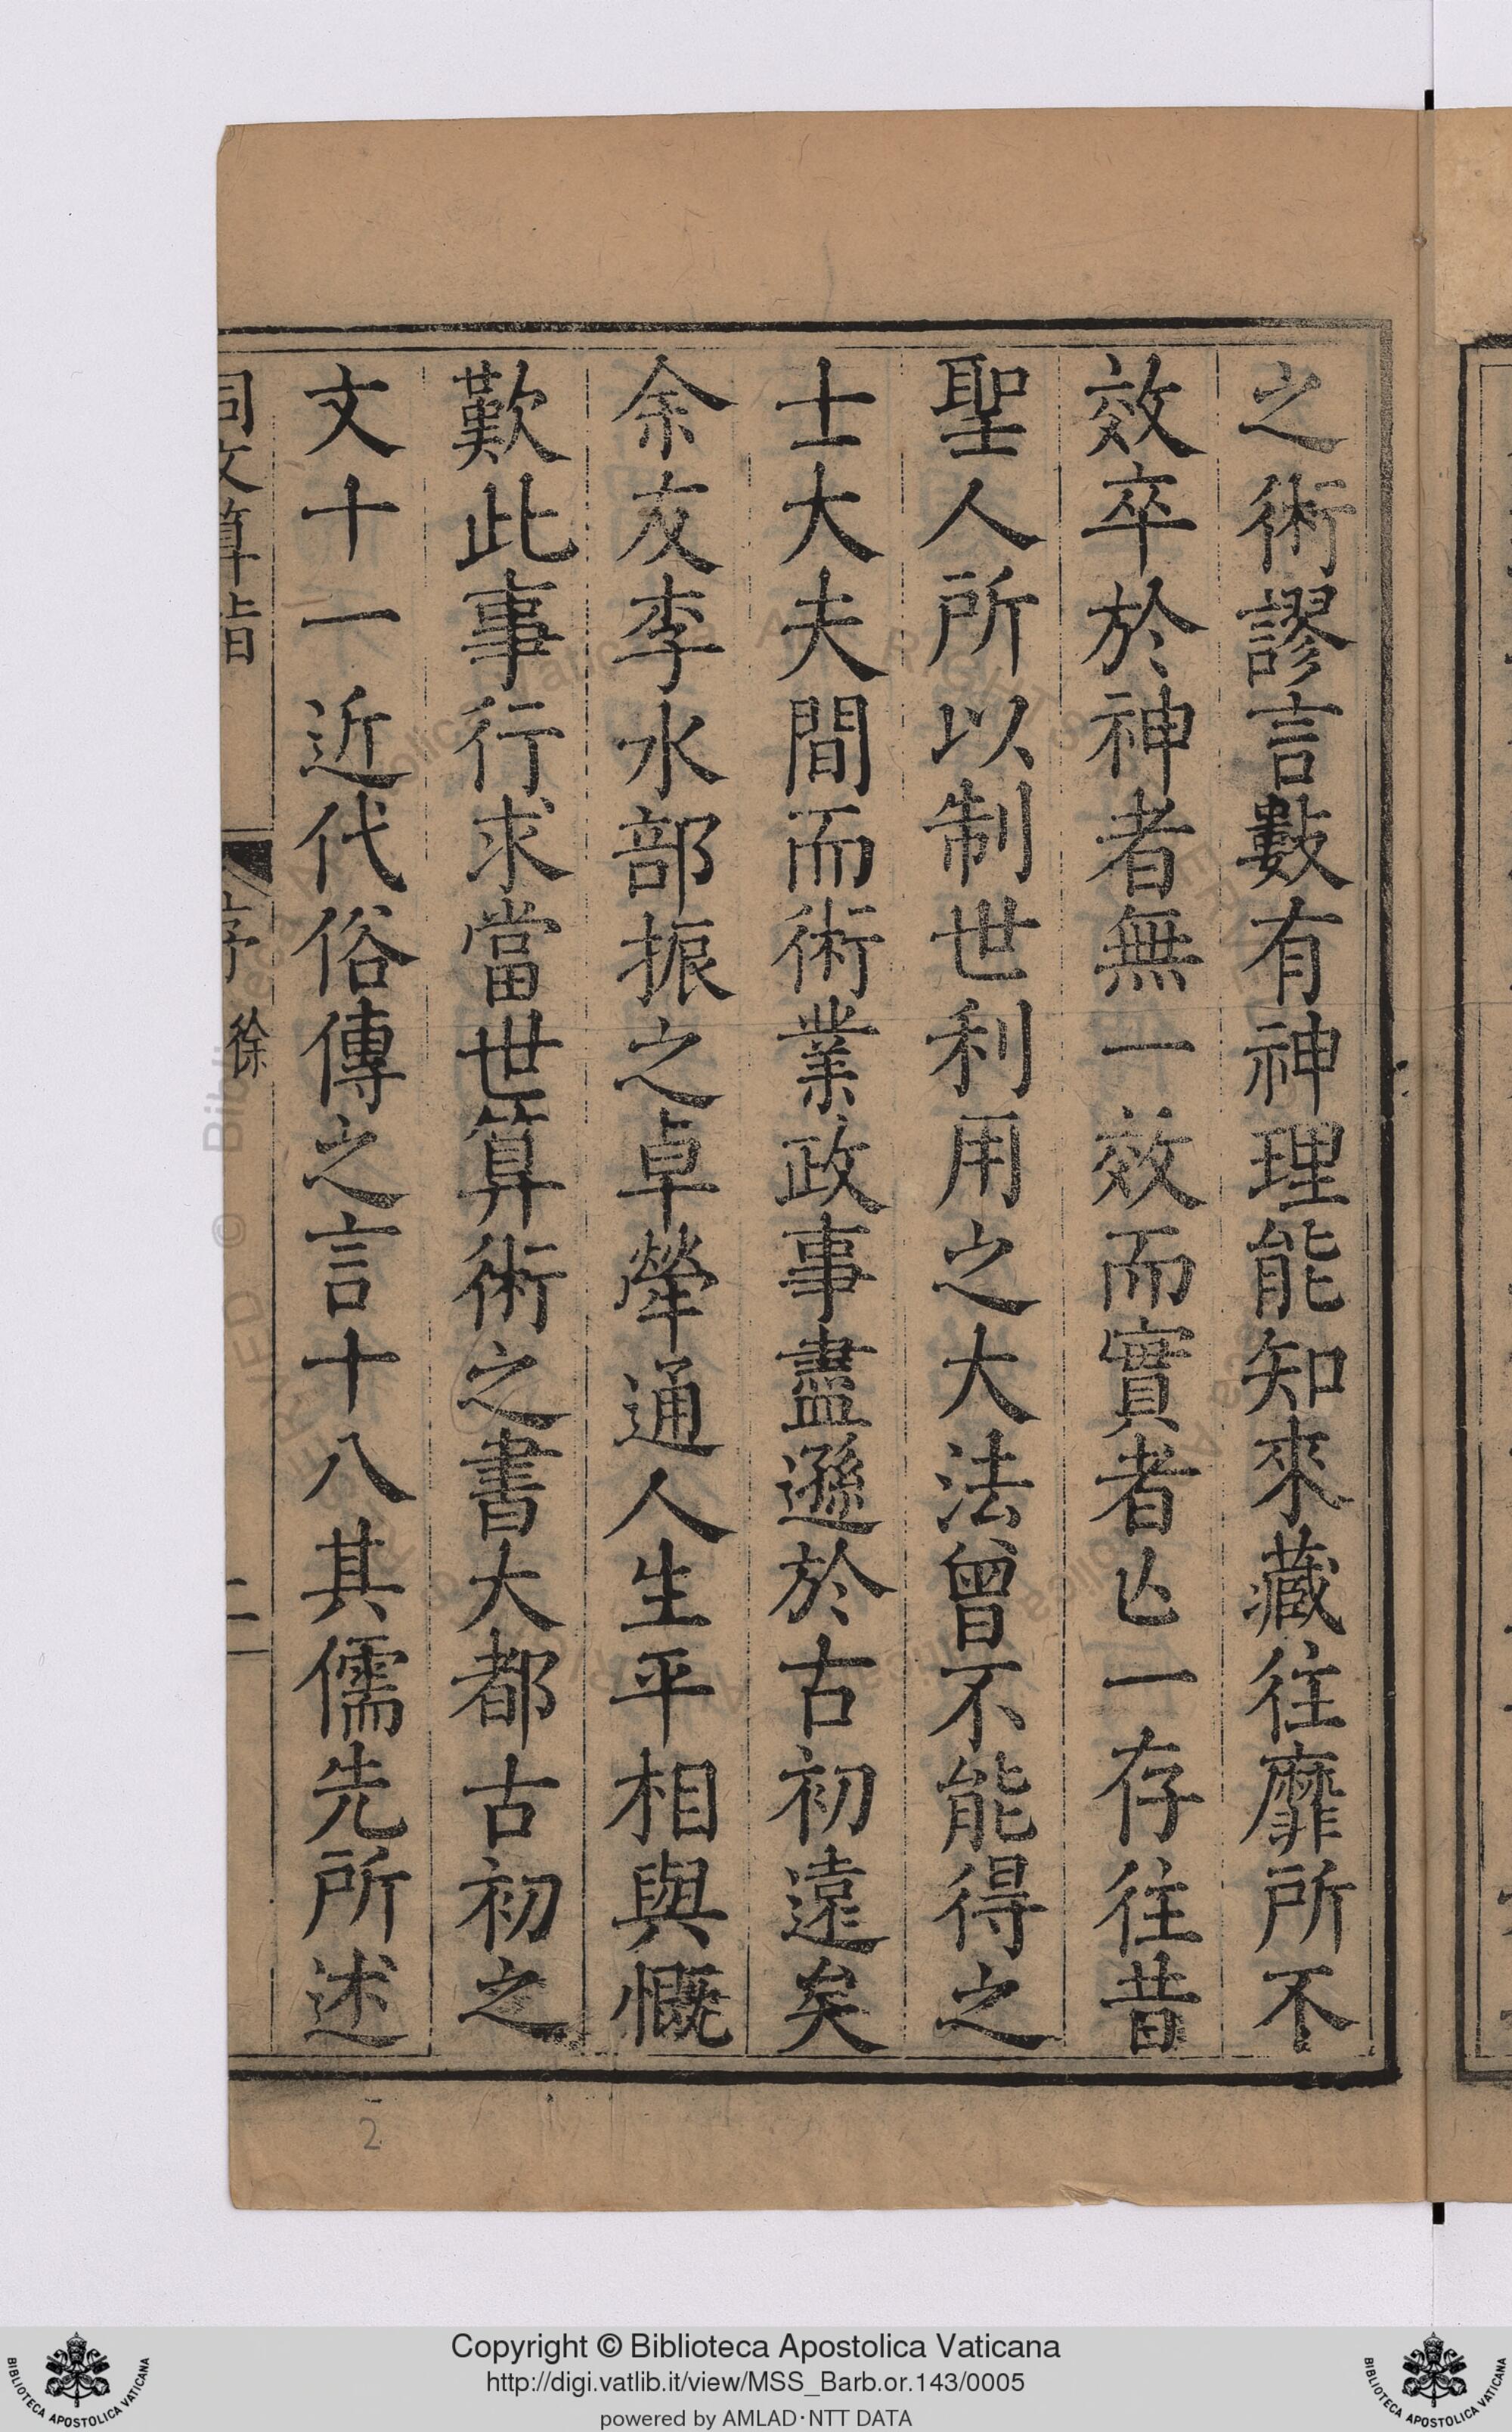 之術謬言數有神理能知來藏往靡所不
效卒於神者無一效而實者亾一存往昔
聖人所以制世利用之大法曾不能得之
士大夫間而術業政事盡遜於古初遠矣
余友李水部振之卓犖通人生平相與慨
歎此事行求當世算術之書大都古初之
文十一近代俗傳之言十八其儒先所述
同文算指 序 徐 二
2
Copyright © Biblioteca Apostolica Vaticana
http://digi.vatlib.it/view/MSS_Barb.or.143/0005
powered by AMLAD·NTT DATA
BIBLIOTECA APOSTOLICA VATICANA
BIBLIOTECA APOSTOLICA VATICANA